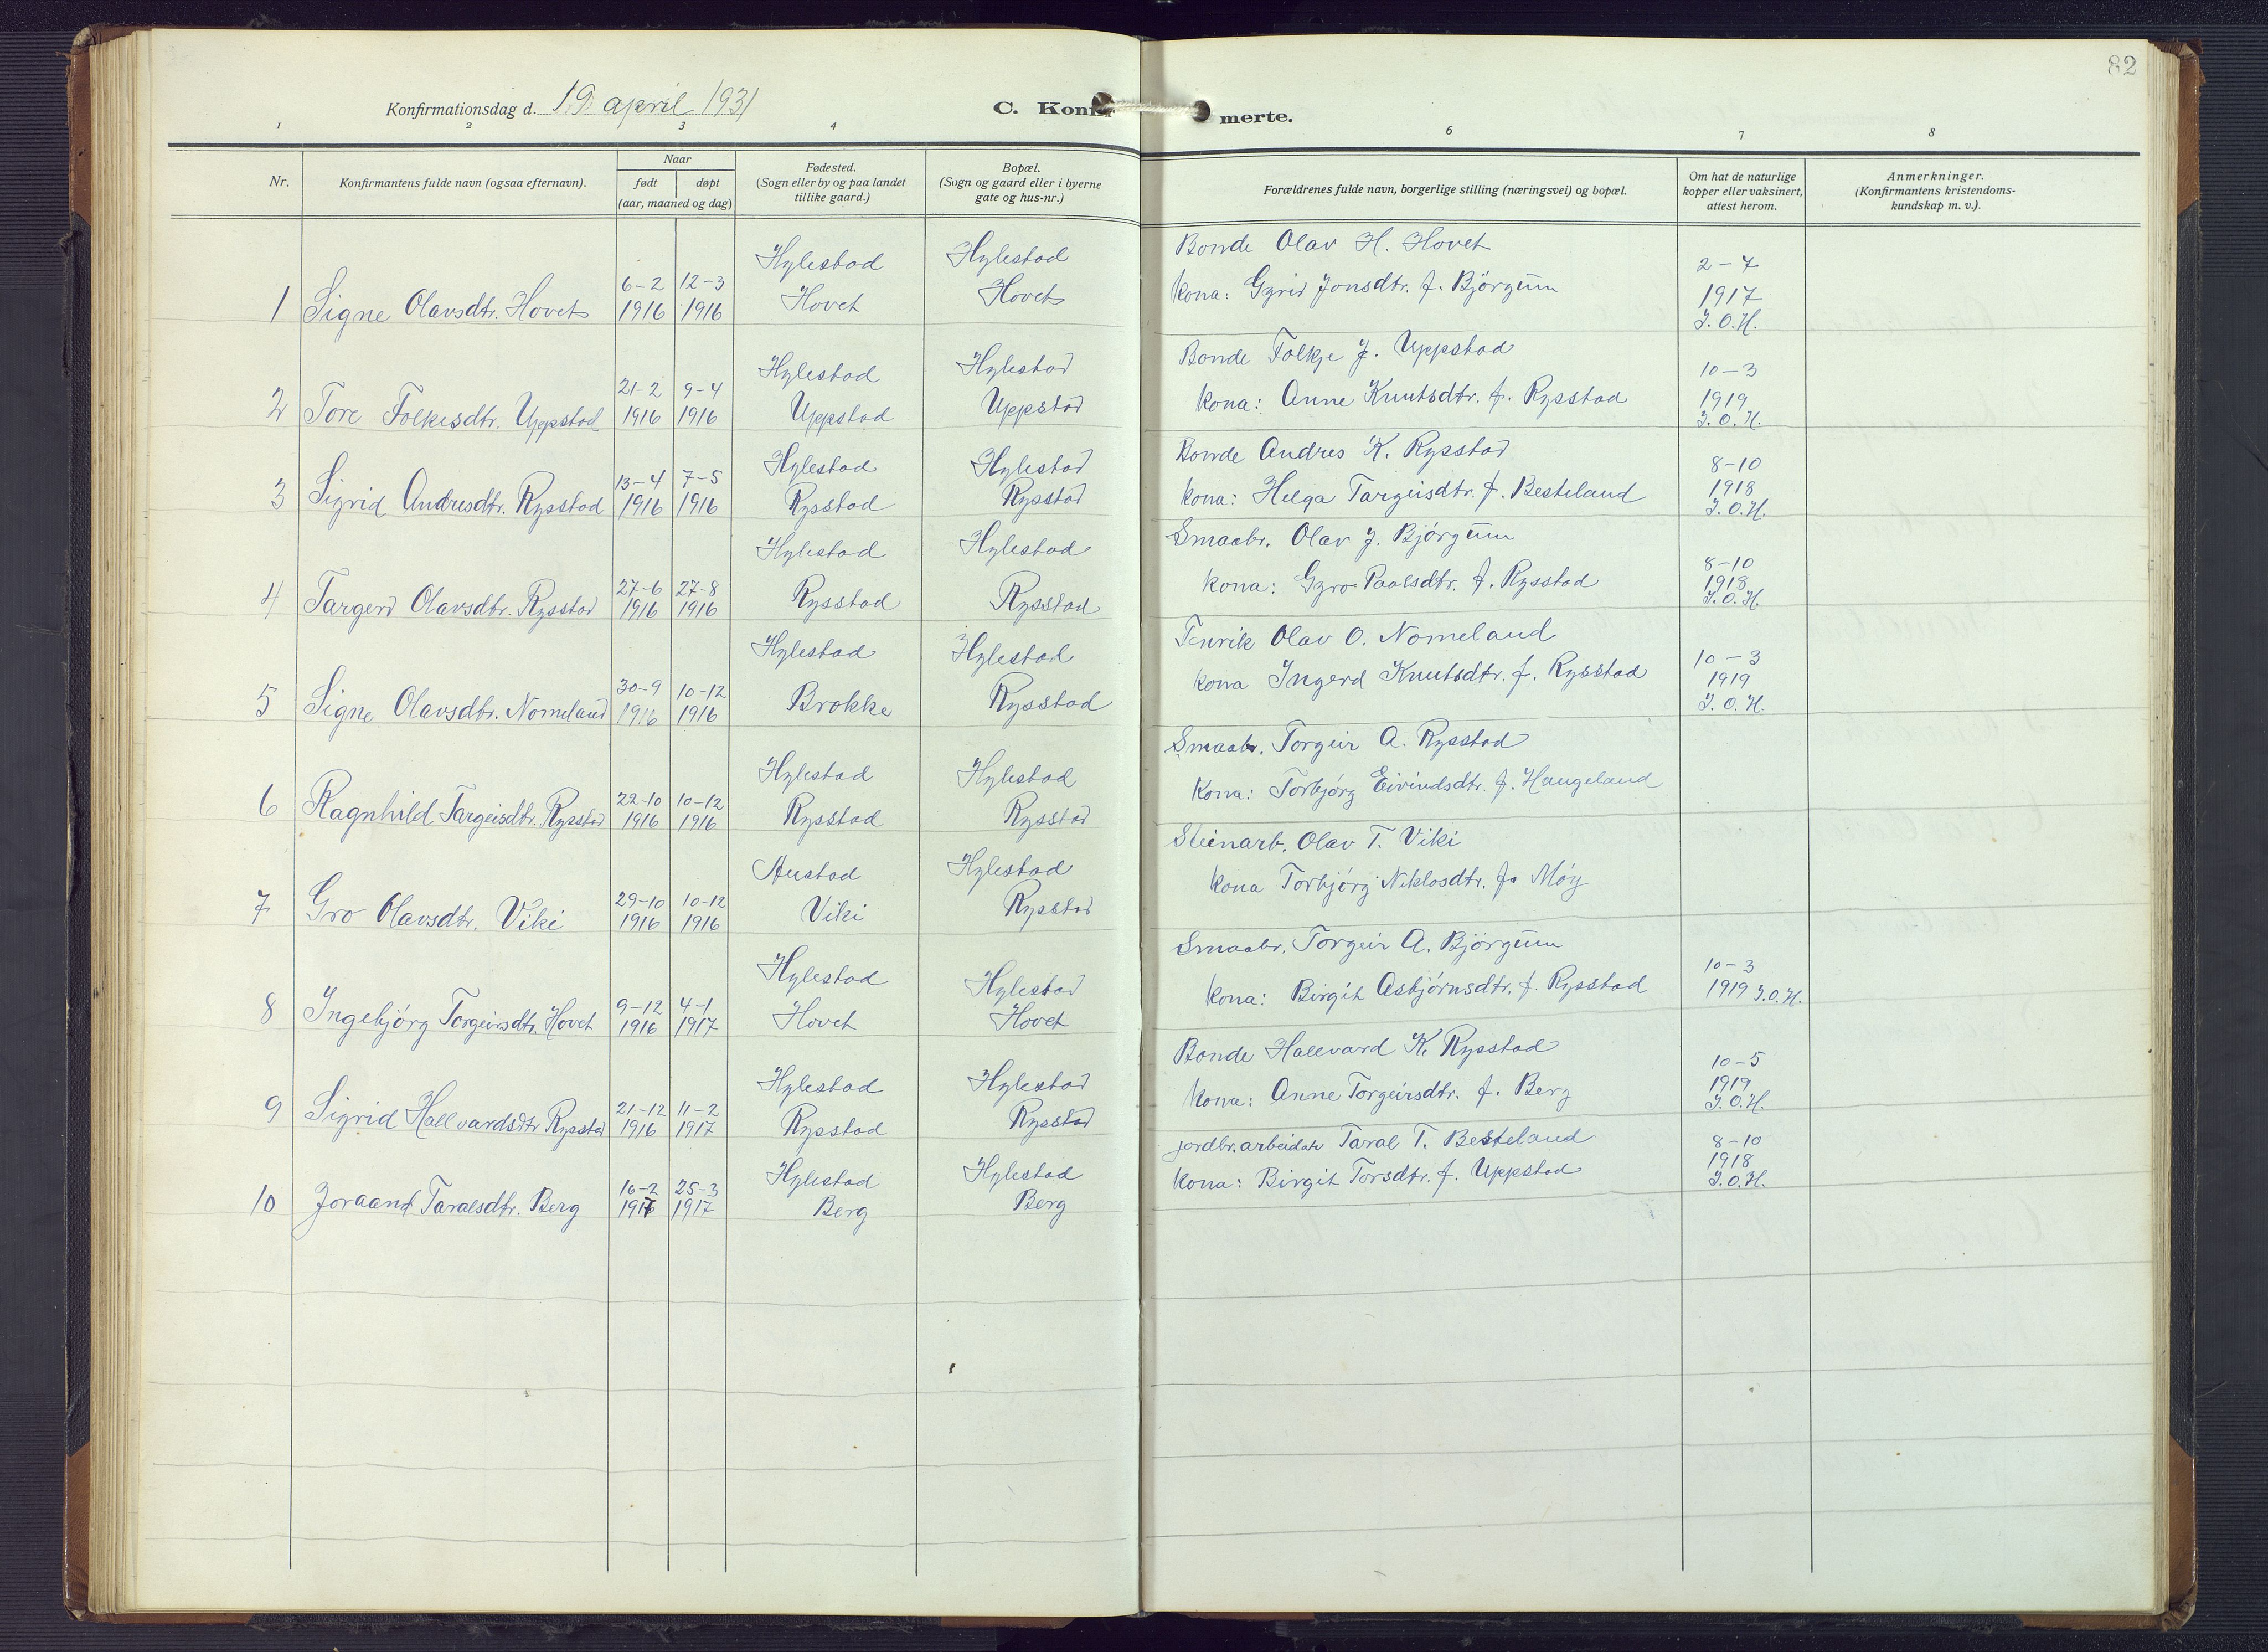 82
Konfirmationsdag d. 19 april 1931
C. Konfirmerte.
1 2 3 4 6 7 8
Nr.
Konfirmantens fulde navn (ogsaa efternavn).
Naar
født døpt
(aar, maaned og dag)
Fødested.
(Sogn eller by og paa landet
tillike gaard.)
Bopæl.
(Sogn og gaard eller i byerne
gate og hus-nr.)
Forældrenes fulde navn, borgerlige stilling (næringsvei) og bopæl.
Om hat de naturlige
kopper eller vaksinert,
attest herom.
Anmerkninger.
(Konfirmantens kristendoms-
kundskap m. v.).
Hylestad Hylestad Bonde Olav H. Hovet
6-2 12-3 kona: Gyrid Jonsdtr. f. Bjørgum 2-7
1 Signe Olavsdtr. Hovet 1916 1916 Hovet Hovet 1917
J.O.H.
Hylestad Hylestad Bonde Folkje J. Uppstad
21-2 9-4 kona: Anne Knutsdtr. f. Rysstad 10-3
2 Tore Folkesdtr. Uppstad 1916 1916 Uppstad Uppstad 1919
J.O.H.
Hylestad Hylestad Bonde Andres K. Rysstad
13-4 7-5 kona: Helga Targeisdtr. f. Besteland 8-10
3 Sigrid Andresdtr. Rysstad 1916 1916 Rysstad Rysstad 1918
J.O.H.
Hylestad Hylestad Smaabr. Olav J. Bjørgum
27-6 27-8 kona: Gyro Paalsdtr. f. Rysstad 8-10
4 Targerd Olavsdtr. Rysstad 1916 1916 Rysstad Rysstad 1918
J.O.H.
Hylestad Hylestad Fenrik Olav O. Nomeland
30-9 10-12 kona Ingerd Knutsdtr. f. Rysstad 10-3
5 Signe Olavsdtr. Nomeland 1916 1916 Brokke Rysstad 1919
J.O.H.
Hylestad Hylestad Smaabr. Torgeir A. Rysstad
22-10 10-12 Kona: Torbjørg Eivindsdtr. f. Haugeland
6 Ragnhild Targeisdtr. Rysstad 1916 1916 Rysstad Rysstad
Austad Hylestad Steinarb. Olav T. Viki
29-10 10-12 kona Torbjørg Niklosdtr. f. Møy
7 Gro Olavsdtr. Viki 1916 1916 Viki Rysstad
Hylestad Hylestad Smaabr. Torgeir A. Bjørgum
9-12 4-1 kona: Birgit Asbjørnsdtr. f. Rysstad 10-3
8 Ingebjørg Torgeirsdtr. Hovet 1916 1917 Hovet Hovet 1919 J.O.H.
Hylestad Hylestad Bonde Hallvard K. Rysstad
21-12 11-2 kona: Anne Torgeirsdtr. f. Berg 10-5
9 Sigrid Hallvardsdtr Rysstad 1916 1917 Rysstad Rysstad 1919
J.O.H.
Hylestad Hylestad jordbr.arbeidar Taral T. Besteland 8-10
16-2 25-3 kona: Birgit Torsdtr. f. Uppstad 1918
10 Joraand Taralsdtr. Berg 1917 1917 Berg Berg J.O.H.